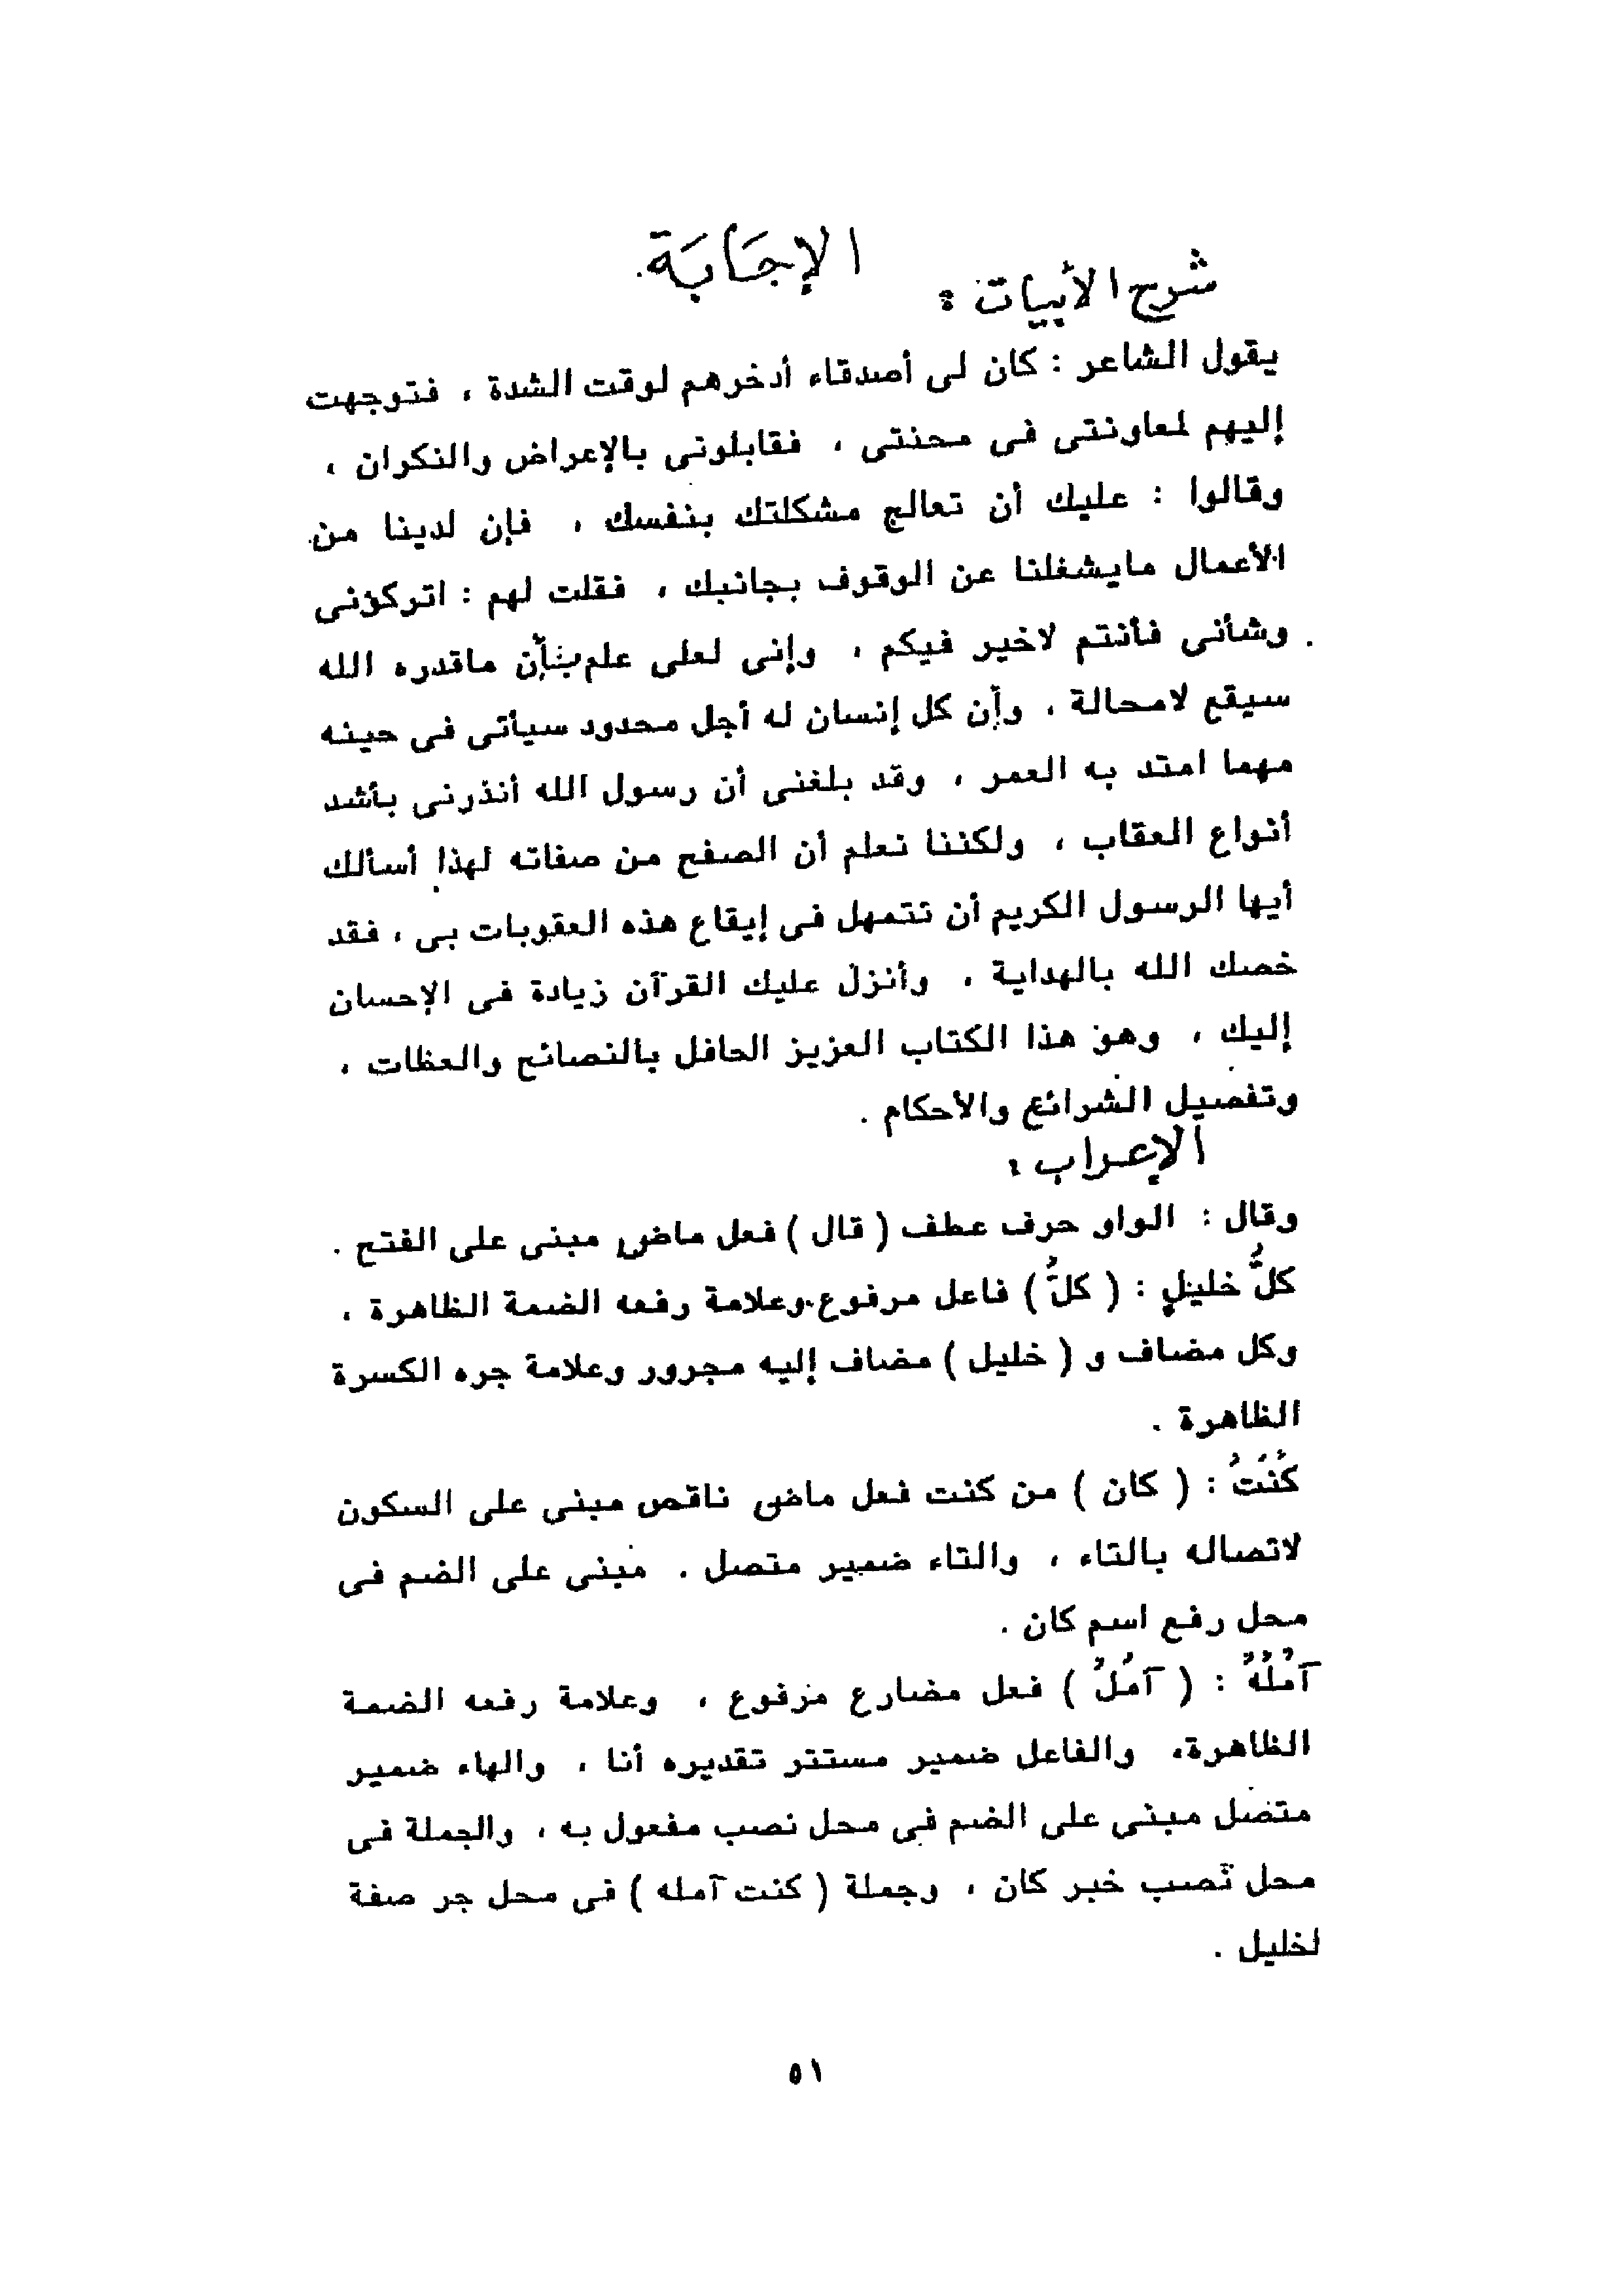 الإجَابَة
شرح الأبيات :
يقول الشاعر : كان لى أصدقاء أدخرهم لوقت الشدة ، فتوجهت
إليهم لمعاونتى فى محنتى ، فقابلونى بالإعراض والنكران ،
وقالوا : عليك أن تعالج مشكلتك بنفسك ، فإن لدينا من
الأعمال مايشغلنا عن الوقوف بجانبك ، فقلت لهم : اتركونى
وشأنى فأنتم لاخير فيكم ، وإنى لعلى علم بأن ماقدره الله
سيقع لامحالة ، وأن كل إنسان له أجل محدود سيأتى فى حينه
مهما امتد به العمر ، وقد بلغنى أن رسول الله أنذرنى بأشد
أنواع العقاب ، ولكننا نعلم أن الصفح من صفاته لهذا أسألك
أيها الرسول الكريم أن تتمهل فى إيقاع هذه العقوبات بى ، فقد
خصك الله بالهداية ، وأنزل عليك القرآن زيادة فى الإحسان
إليك ، وهو هذا الكتاب العزيز الحافل بالنصائح والعظات ،
وتفصيل الشرائع والأحكام .
الإعراب :
وقال : الواو حرف عطف ( قال ) فعل ماضٍ مبنى على الفتح .
كلُّ خليلٍ : ( كلُّ ) فاعل مرفوع وعلامة رفعه الضمة الظاهرة ،
وكل مضاف و ( خليل ) مضاف إليه مجرور وعلامة جره الكسرة
الظاهرة .
كُنتُ : ( كان ) من كنت فعل ماضى ناقص مبنى على السكون
لاتصاله بالتاء ، والتاء ضمير متصل . مبنى على الضم فى
محل رفع اسم كان .
آمُلُهُ : ( آمُلُ ) فعل مضارع مرفوع ، وعلامة رفعه الضمة
الظاهرة، والفاعل ضمير مستتر تقديره أنا ، والهاء ضمير
متصل مبنى على الضم فى محل نصب مفعول به ، والجملة فى
محل نصب خبر كان ، وجملة ( كنت آمله ) فى محل جر صفة
لخليل .
٥١